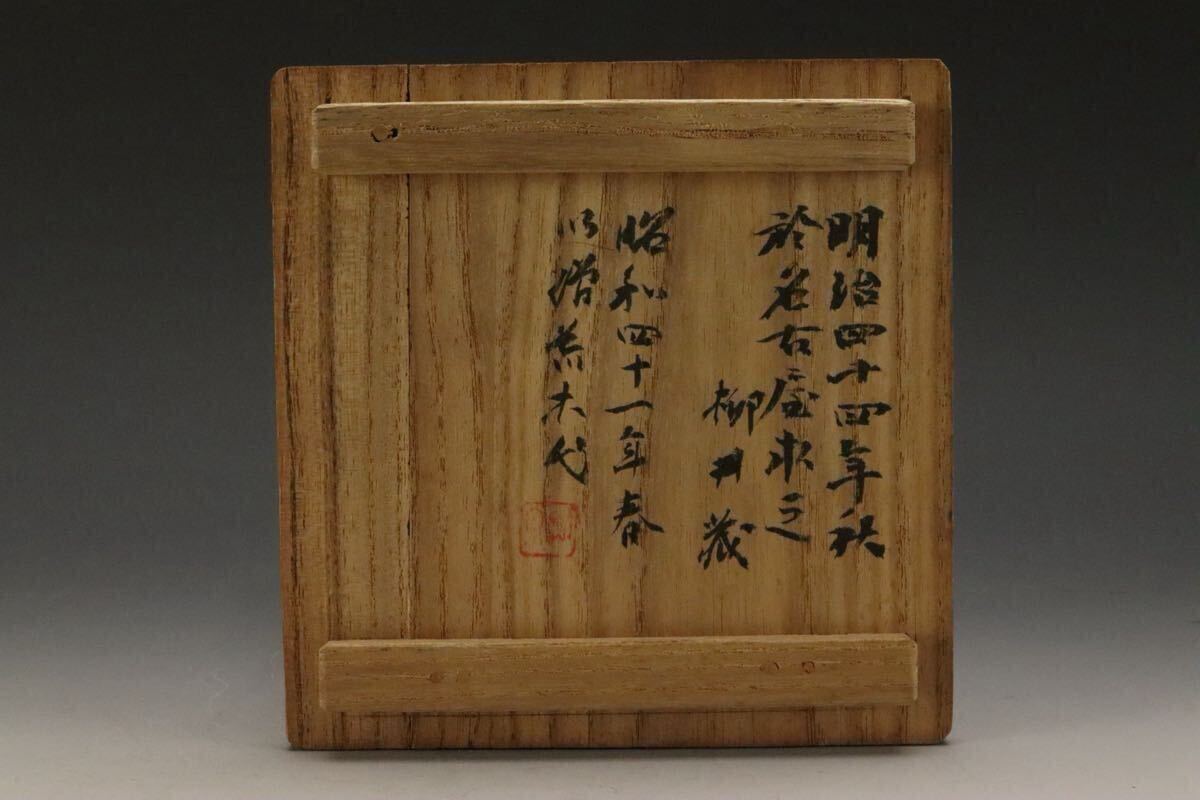 明治四十四年秋
於名古屋求之
柳井蔵
昭和四十一年春
以贈荒木代